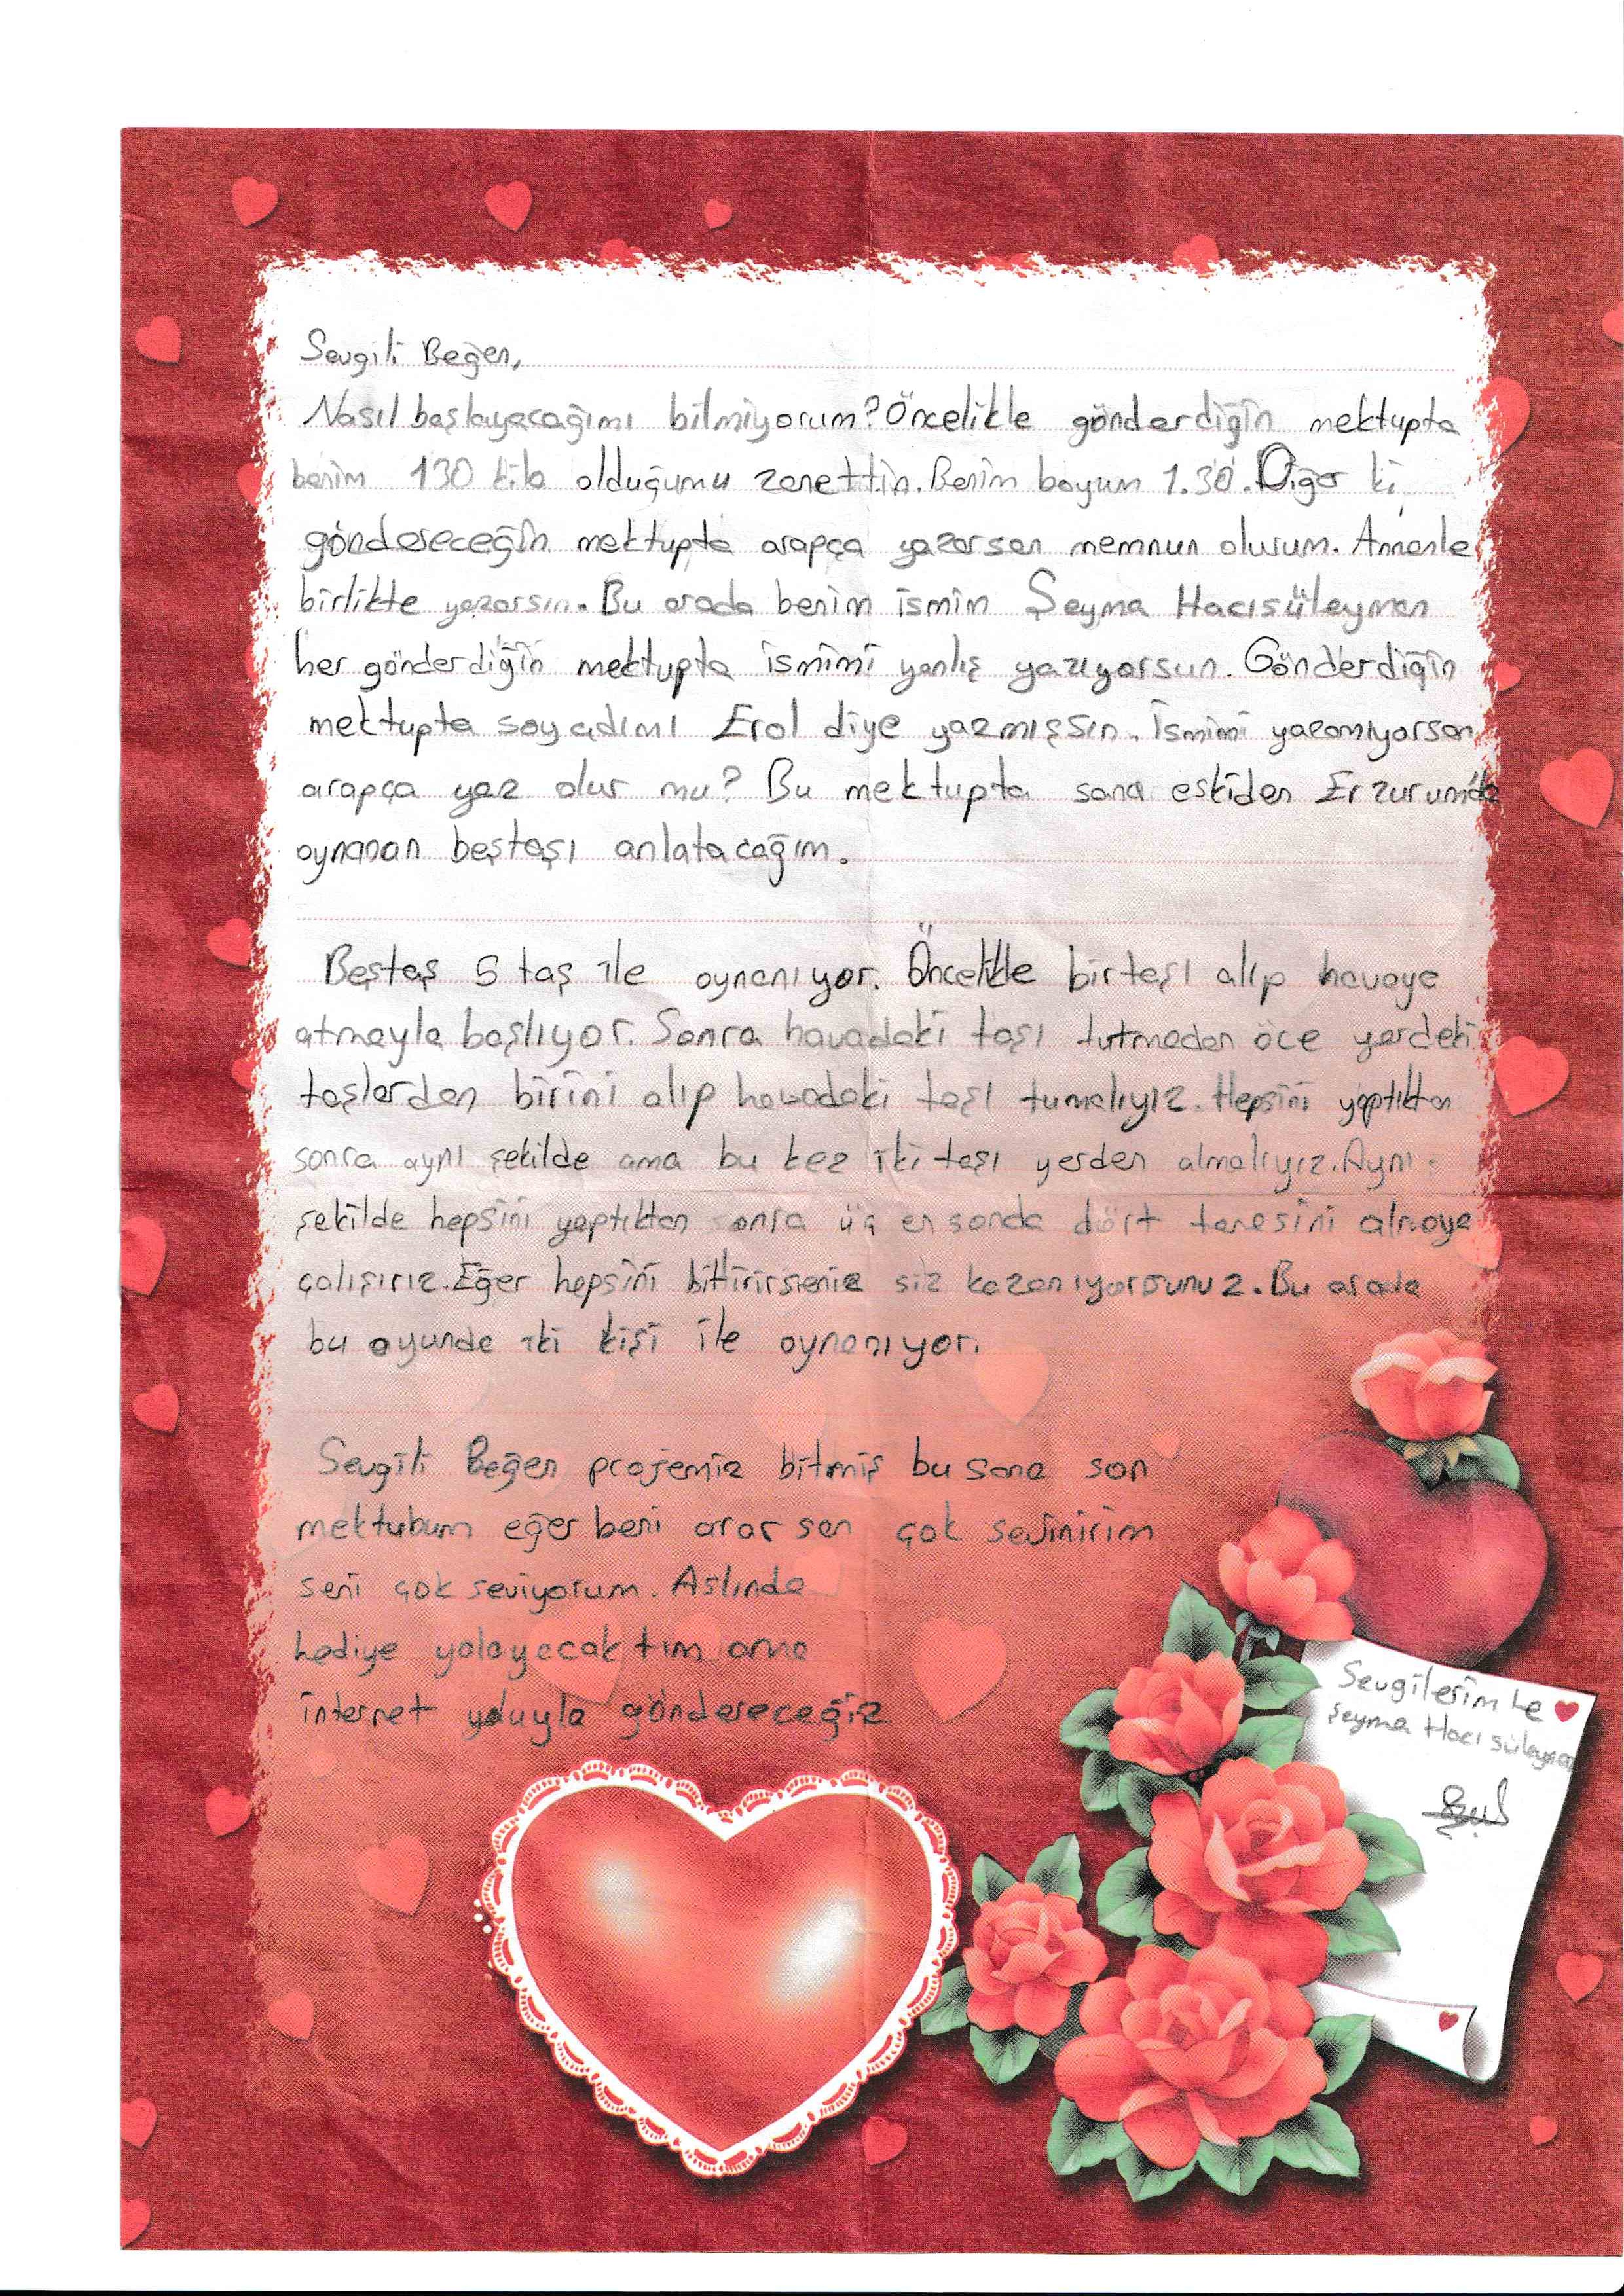 Sevgili Beğen,
Nasıl başlayacağımı bilmiyorum? Öncelikle gönderdiğin mektupta
benim 130 kilo olduğumu zanettin. Benim boyum 1.30. Diğer ki
göndereceğin mektupta arapça yazarsan memnun olurum. Annenle
birlikte yazarsın. Bu arada benim ismim Şeyma Hacısüleyman
her gönderdiğin mektupta ismimi yanlış yazıyorsun. Gönderdiğin
mektupta soyadımı Erol diye yazmışsın. İsmimi yazamıyorsan
arapça yaz olur mu? Bu mektupta sana eskiden Erzurum'da
oynanan beştaşı anlatacağım.
Beştaş 5 taş ile oynanıyor. Öncelikle bir taşı alıp havaya
atmayla başlıyor. Sonra havadaki taşı tutmadan öce yerdeki
taşlardan birini alıp havadaki taşı tumalıyız. Hepsini yaptıktan
sonra aynı şekilde ama bu kez iki taşı yerden almalıyız. Aynı
şekilde hepsini yaptıktan sonra üç en sonda dört tanesini almaya
çalışırız. Eğer hepsini bittirirseniz siz kazanıyorsunuz. Bu arada
bu oyunda iki kişi ile oynanıyor.
Sevgili Beğen projemiz bitmiş bu sana son
mektubum eğer beni ararsan çok sevinirim
seni çok seviyorum. Aslında
hediye yolayacaktım ama
internet yoluyla göndereceğiz
Sevgilerimle
Şeyma Hacısüleyman